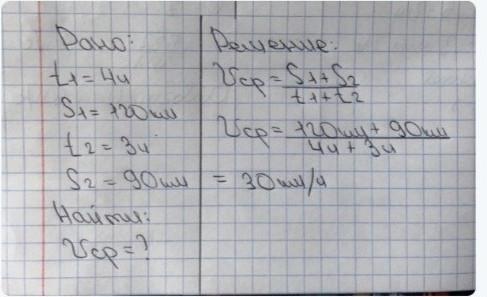 Дано:
t1 = 4ч
S1 = 120км
t2 = 3ч
S2 = 90км
Найти:
Vср = ?
Решение:
Vср = S1 + S2 / t1 + t2
Vср = 120км + 90км / 4ч + 3ч
= 30км/ч